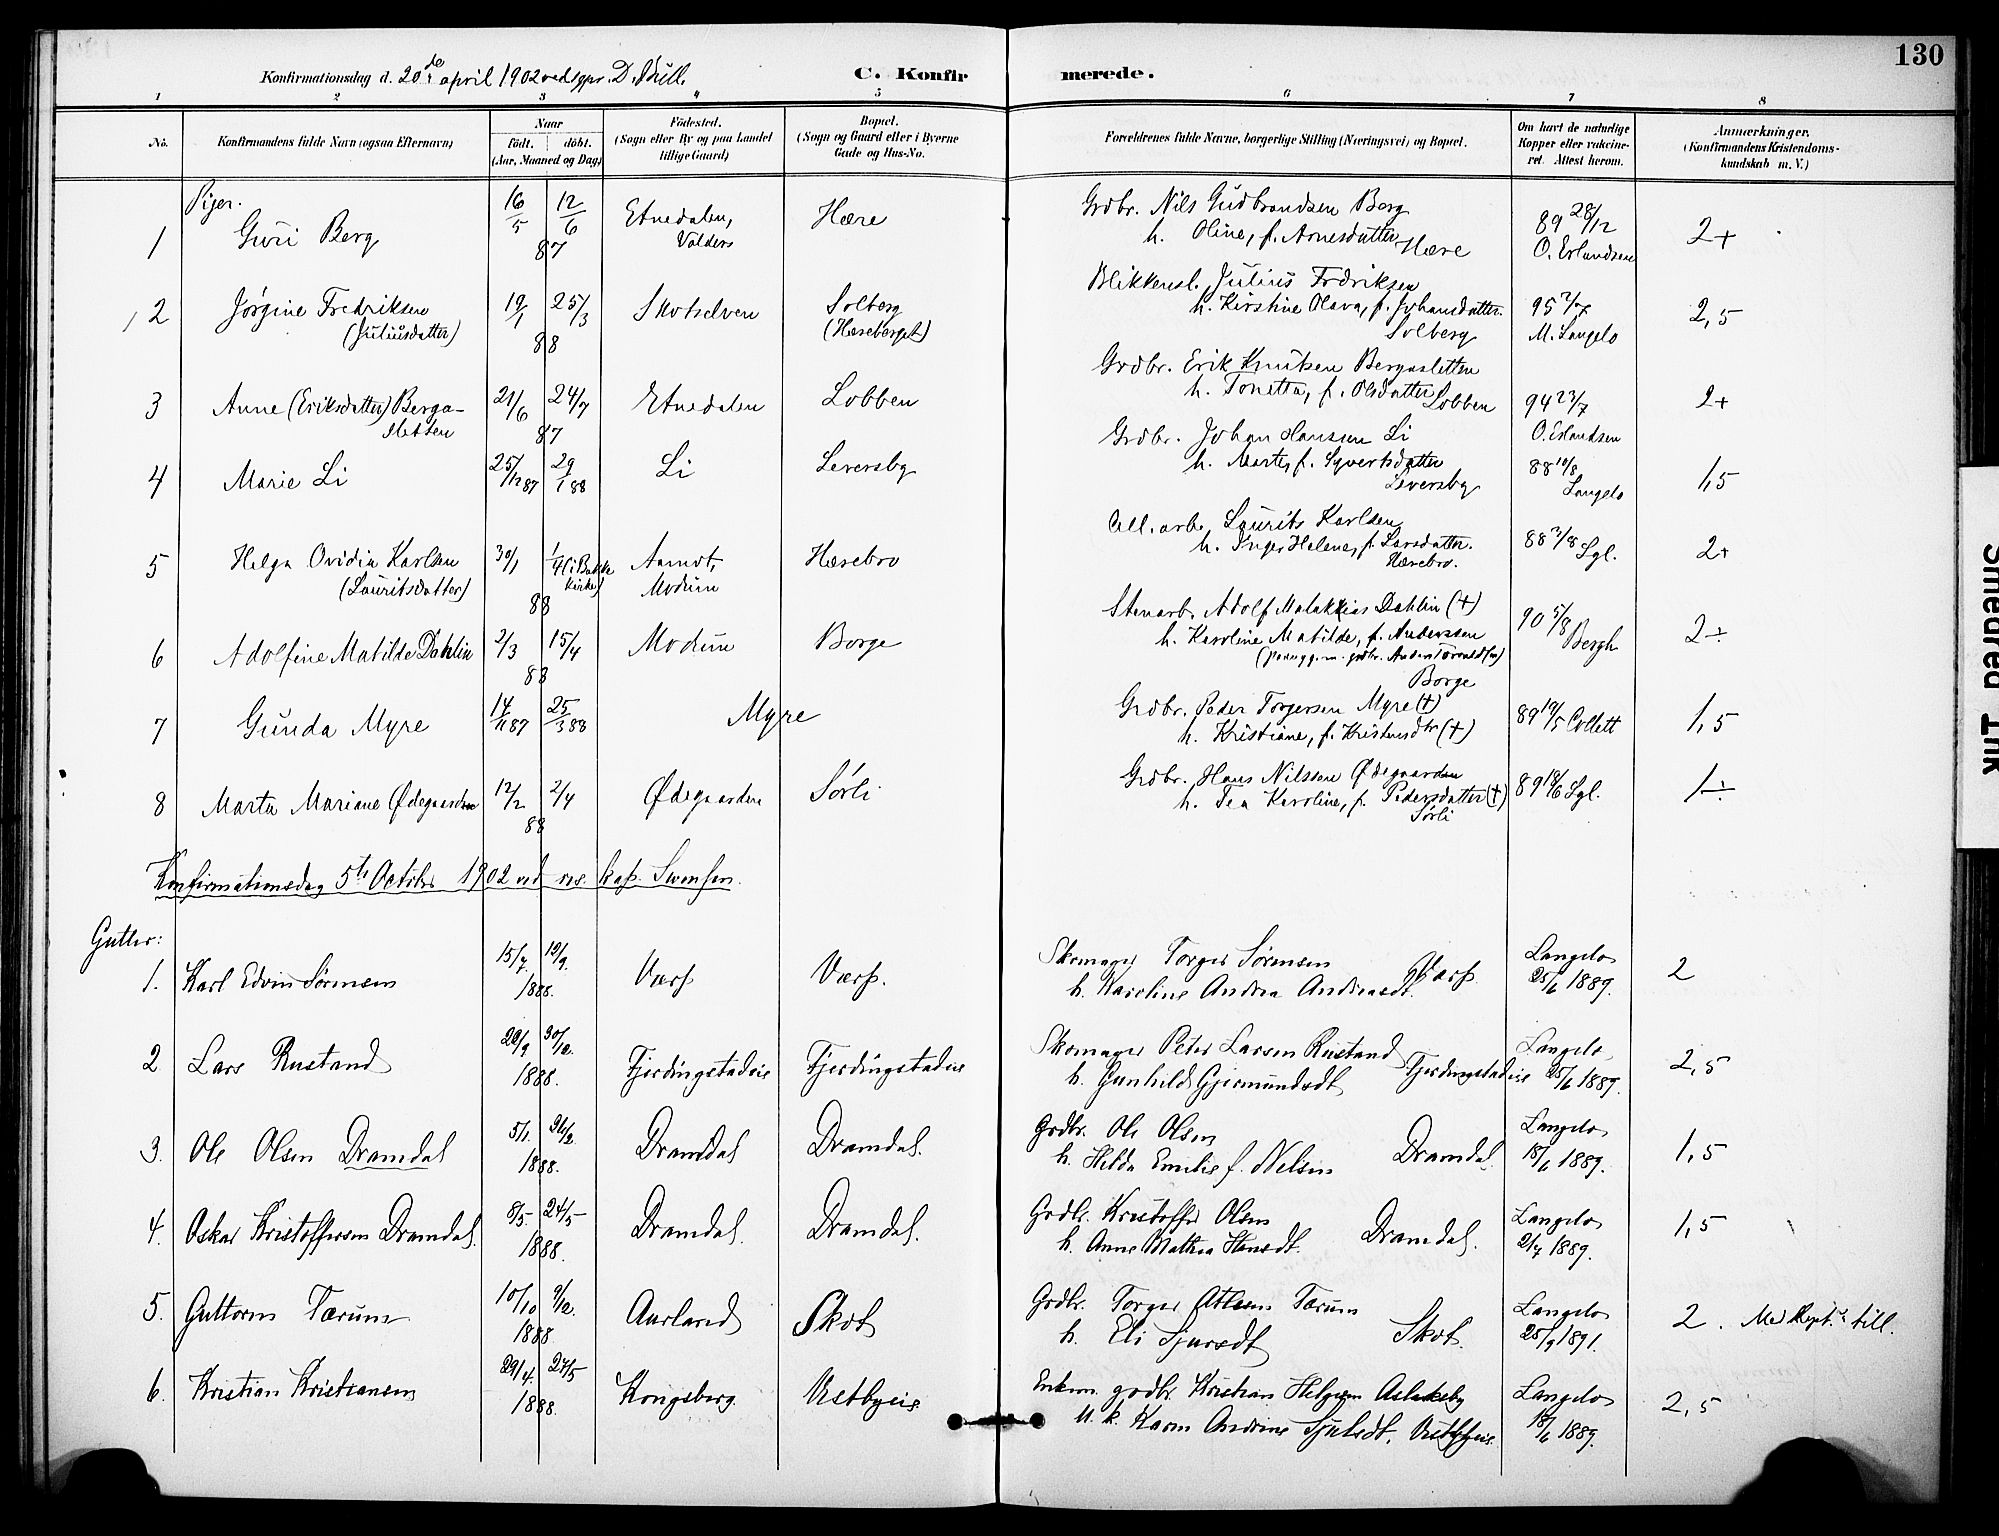 130
Konfirmationsdag d. 20de april 1902 ved sgpr. D.
C. Konfirmerede.
1 2 3 4 5 6 7 8
No.
Konfirmandens fulde Navn (ogsaa Efternavn)
Naar
født. døbt.
(Aar, Maaned og Dag)
Fødested.
(Sogn eller By og paa Landet
tillige Gaard)
Bopæl.
(Sogn og Gaard eller i Byerne
Gade og Hus-No.
Forældrenes fulde Navne, borgerlige Stilling (Næringsvei) og Bopæl.
Om havt de naturlige
Kopper eller vakcine-
ret. Attest herom.
Anmærkninger.
(Konfirmandens Kristendoms-
kundskab m. V.)
Piger.
1 Guri Berg 16/5 12/6 87 Etnedalen, Valders Hære
Grdbr. Nils Gudbrandsen Berg
h. Oline, f. Arnesdatter Hære
89 28/12 O. Erlandsen 2+
2 Jørgine Fredriksen (Juliusdatter) 19/1 25/3 88 Skotselven Solberg (Hæreberget)
Blikkensl. Julius Fredriksen
h. Kirstine Olava, f. Johansdatter. Solberg
95 2/7 M. Langelo 2,5
3 Anne (Eriksdatter) Berga-
sletten 21/6 24/7 87 Etnedalen Lobben
Grdbr. Erik Knutsen Bergasletten
h. Tonetta, f. Olsdatter Lobben
94 23/7 O. Erlandsen 2+
4 Marie Li 25/12 87 29/1 88 Li Leversby
Grdbr. Johan Hanssen Li
h. Marte, f. Syvertsdatter Leversby
88 10/8 Langelo 1,5
5 Helga Ovidia Karlsen (Lauritsdatter) 30/1 1/4 (i Bakke Kirke) 88 Aamot, Modum Hærebro
Cell. arb. Laurits Karlsen
h. Inger Helene, f. Larsdatter. Hærebro.
88 2/8 Lgl. 2+
6 Adolfine Matilde Dahlin 2/3 15/4 88 Modum Borge
Stenarb. Adolf Malakias Dahlin (+)
h. Karoline Matilde, f. Anderssen
Borge
90 5/8 Bergh 2÷
7 Gunda Myre 14/11 87 25/3 88 Myre
Grdbr. Peder Torgersen Myre (+)
h. Kristiane, f. Kristensdtr (+)
89 19/5 Collett 1,5
8 Marta Mariane Ødegaarden 12/2 2/4 88 Ødegaarden Sørli
Grdbr. Hans Nilssen Ødegaarden
h. Tea Karoline, f. Pedersdatter (+) Sørli
89 18/6 Lgl. 1÷
Konfirmationsdag 5te October 1902 ved res. kap. Svensen.
Gutter:
1. Karl Edvin Sørensen 15/7 19/9. 1888. Værp Værp.
Skomager Torger Sørensen
h. Karoline Andrea Andreasdt. Værp
Langelo 25/6 1889. 2
2 Lars Rustand 29/9 30/12. 1888. Fjerdingstadeie Fjerdingstadeie
Skomager Peter Larsen Rustand
h. Gunhild Gjermundsdt Fjerdingstadeie
Langelo 25/6 1889. 2,5
3. Ole Olsen Dramdal 5/1. 26/2. 1888. Dramdal Dramdal.
Grdbr. Ole Olsen
h. Hilda Emilie f. Nelsen Dramdal.
Langelo 18/6 1889. 1,5
4. Oskar Kristoffersen Dramdal. 8/5. 24/5 1888. Dramdal. Dramdal.
Grdbr. Kristoffer Olsen
h. Anne Mathea Hansdt. Dramdal.
Langelo 2/7 1889. 1,5
5. Guttorm Tærum 10/10 9/12. 1888. Aurland Skot
Grdbr. Torger Atlesen Tærum
h. Eli Sjursdt Skot.
Langelo 25/9 1891. 2. Med till.
6. Kristian Kristiansen 29/4. 27/5 1888. Kongsberg. Vestbyeie
Enkem. grdbr. Kristian Helgesen Aslakeby
U. k. Karen Andrine Sjulsdt. Vestbyeie.
Langelo 18/6 1889. 2,5
Smedrud Ink